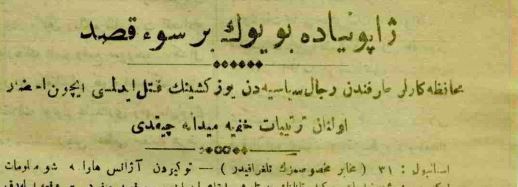 ژاپونیاده بویوك بر سوء قصد
محافظه كارلر طرفندن رجال سیاسیه‌دن یوز كشینك قتل ایدلمسی ایچون احضار
اولنان ترتیبات خفیه میدانه چیقدی
استانبول : ٣١ (مخابر مخصوصمزك تلغرافیدر) — توكیودن آژانس هاوا‌‌سه شو معلومات